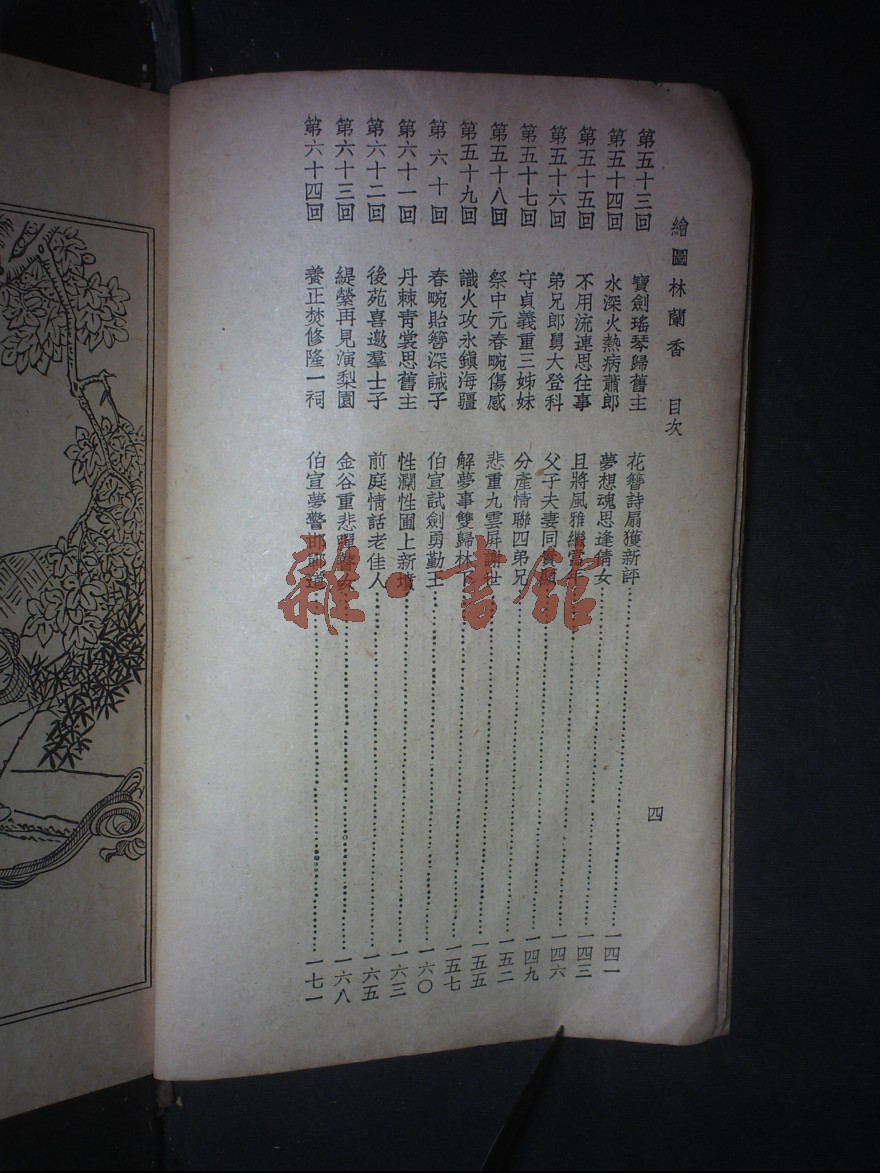 繪圖林蘭香 目次 四
第五十三回 寶劍瑤琴歸舊主 花簪詩扇獲新評 一四一
第五十四回 水深火熱病蕭郎 夢想魂思逢倩女 一四三
第五十五回 不用流連思往事 且將風雅繼當年 一四六
第五十六回 弟兄郎舅大登科 父子夫妻同 一四九
第五十七回 守貞義重三姊妹 分產情聯四弟兄 一五二
第五十八回 祭中元春畹傷感 悲重九雲屏謝世 一五五
第五十九回 識火攻永鎮海疆 解夢事雙歸林下 一五七
第六十回 春畹貽簪深誡子 伯宣試劍勇勤王 一六〇
第六十一回 丹棘青裳思舊主 性瀾性圃上新墳 一六三
第六十二回 後苑喜邀羣士子 前庭情話老佳人 一六五
第六十三回 緹縈再見演梨園 金谷重悲彈瞽女 一六八
第六十四回 養正焚修隆一祠 伯宣夢警邯鄲道 一七一
雜·書館